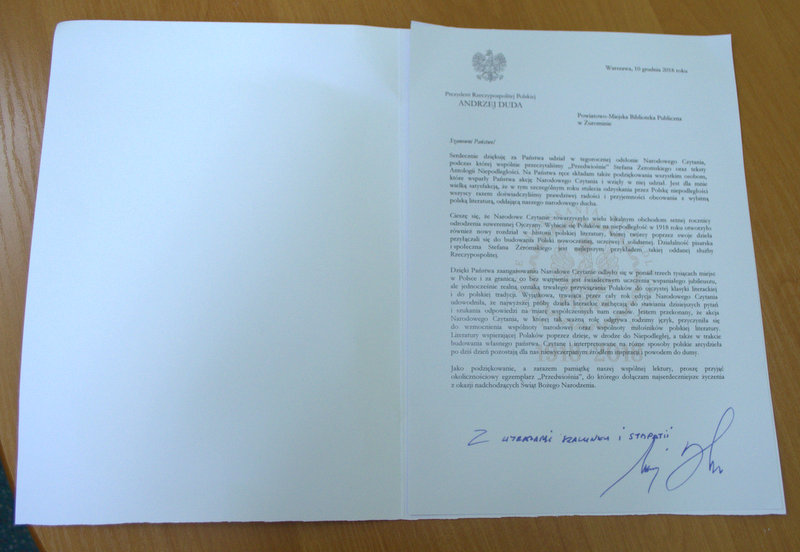 Warszawa, 10 grudnia 2018 roku
Prezydent Rzeczypospolitej Polskiej
ANDRZEJ DUDA
Powiatowo-Miejska Biblioteka Publiczna
w Żurominie
Szanowni Państwo!
Serdecznie dziękuję za Państwa udział w tegorocznej odsłonie Narodowego Czytania,
podczas której wspólnie przeczytaliśmy „Przedwiośnie” Stefana Żeromskiego oraz teksty
Antologii Niepodległości. Na Państwa ręce składam także podziękowania wszystkim osobom,
które wsparły Państwa akcję Narodowego Czytania i wzięły w niej udział. Jest dla mnie
wielką satysfakcją, że w tym szczególnym roku stulecia odzyskania przez Polskę niepodległości
wszyscy razem doświadczyliśmy prawdziwej radości i przyjemności obcowania z wybitną
polską literaturą, oddającą naszego narodowego ducha.
Cieszę się, że Narodowe Czytanie towarzyszyło wielu lokalnym obchodom setnej rocznicy
odrodzenia suwerennej Ojczyzny. Wybicie się Polaków na niepodległość w 1918 roku otworzyło
również nowy rozdział w historii polskiej literatury, której twórcy poprzez swoje dzieła
przyłączali się do budowania Polski nowoczesnej, uczciwej i solidarnej. Działalność pisarska
i społeczna Stefana Żeromskiego jest najlepszym przykładem takiej oddanej służby
Rzeczypospolitej.
Dzięki Państwa zaangażowaniu Narodowe Czytanie odbyło się w ponad trzech tysiącach miejsc
w Polsce i za granicą, co bez wątpienia jest świadectwem uczczenia wspaniałego jubileuszu,
ale jednocześnie realną oznaką trwałego przywiązania Polaków do ojczystej klasyki literackiej
i do polskiej tradycji. Wyjątkowa, trwająca przez cały rok edycja Narodowego Czytania
udowodniła, że najwyższej próby dzieła literackie zachęcają do stawiania dzisiejszych pytań
i szukania odpowiedzi na miarę współczesnych nam czasów. Jestem przekonany, że akcja
Narodowego Czytania, w której tak ważną rolę odgrywa rodzimy język, przyczyniła się
do wzmocnienia wspólnoty narodowej oraz wspólnoty miłośników polskiej literatury.
Literatury wspierającej Polaków poprzez dzieje, w drodze do Niepodległej, a także w trakcie
budowania własnego państwa. Czytane i interpretowane na różne sposoby polskie arcydzieła
po dziś dzień pozostają dla nas niewyczerpanym źródłem inspiracji i powodem do dumy.
1918 2018
Jako podziękowanie, a zarazem pamiątkę naszej wspólnej lektury, proszę przyjąć
okolicznościowy egzemplarz „Przedwiośnia”, do którego dołączam najserdeczniejsze życzenia
z okazji nadchodzących Świąt Bożego Narodzenia.
Z wyrazami szacunku i sympatii